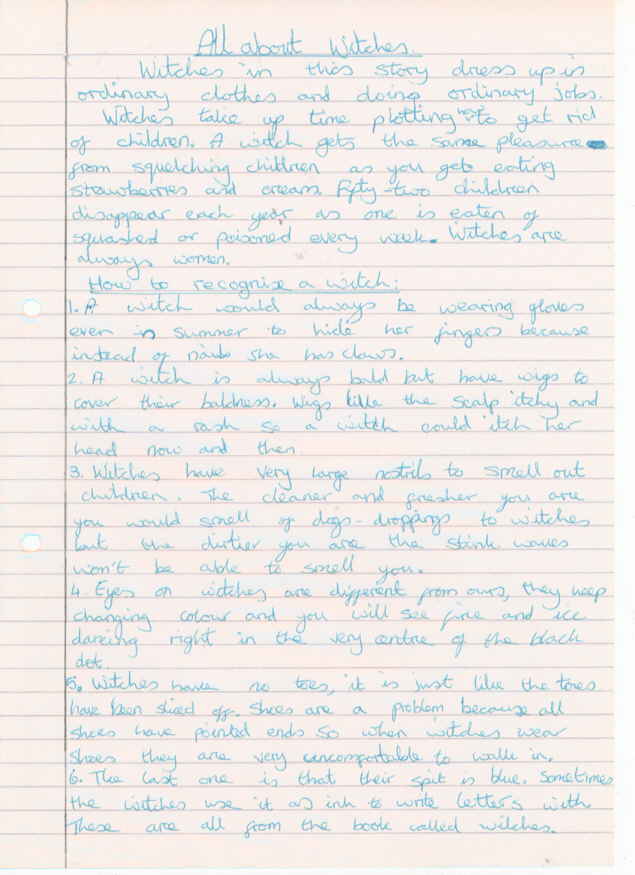 All about Witches.
Witches in this story dress up in
ordinary clothes and doing ordinary jobs.
Witches take up time plotting to get rid
of children. A witch gets the same pleasure
from squelching children as you get eating
strawberries and cream. Fifty-two children
disappear each year as one is eaten of
squashed or poisoned every week. Witches are
always women.
How to recognise a witch:
1. A witch would always be wearing gloves
even in summer to hide her fingers because
instead of nails she has claws.
2. A witch is always bald but have wigs to
cover their baldness. Wigs the scalp itchy and
with a rash so a witch could itch her
head now and then
3. Witches have very large nostrils to smell out
children. The cleaner and fresher you are
you would smell of dogs-droppings to witches
but the dirtier you are the stink waves
won't be able to smell you.
4. Eyes on witches are different from ours, they keep
changing colour and you will see fire and ice
dancing right in the very centre of the black
dot.
5. Witches have no toes, it is just like the toes
have been sliced off. Shoes are a problem because all
shoes have pointed ends so when witches wear
shoes they are very uncomfortable to walk in.
6. The last one is that their spit is blue. Sometimes
the witches use it as ink to write letters with.
These are all from the book called witches.